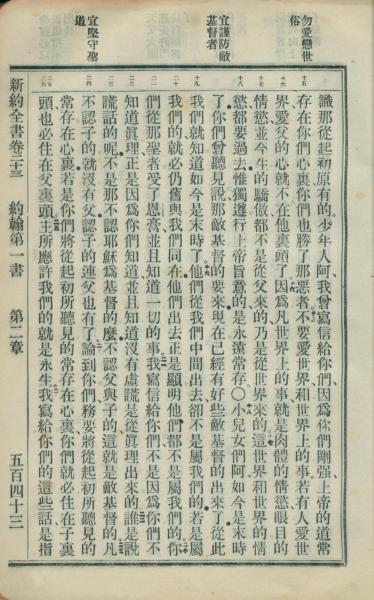 勿愛戀世俗
宜謹防敵基督者
宜堅守聖道
十五
十六
十七
十八
十九
二十
二一
二二
二三
二四
二五
二六
識那從起初原有的少年人阿我曾寫信給你們因爲你們剛强上帝的道常
存在你們心裏你們也勝了那惡者不要愛世界和世界上的事若有人愛世
界愛父的心就不在他裏頭了因爲凡世界上的事就是肉體的情慾眼目的
情慾並今生的驕傲都不是從父來的乃是從世界來的這世界和世界的情
慾都要過去惟獨遵行上帝旨意的是永遠常存○小兒女們阿如今是末時
了你們曾聽見說那敵基督的要來現在已經有好些敵基督的出來了從此
我們就知道如今是末時了他們從我們中間出去卻不是屬我們的若是屬
我們的就必仍舊與我們同在他們出去正是顯明他們都不是屬我們的你
們從那聖者受了恩膏並且知道一切的事我寫信給你們不是因爲你們不
知道眞理正是因爲你們知道並且知道沒有虛謊是從眞理出來的誰是說
謊話的呢不是那不認耶穌爲基督的麼不認父與子的這就是敵基督的凡
不認子的就沒有父認子的連父也有了論到你們務要將從起初所聽見的
常存在心裏若是你們將從起初所聽見的常存在心裏你們就必住在子裏
頭也必住在父裏頭主所應許我們的就是永生我寫給你們的這些話是指
新約全書卷二十三 約翰第一書 第二章 五百四十三